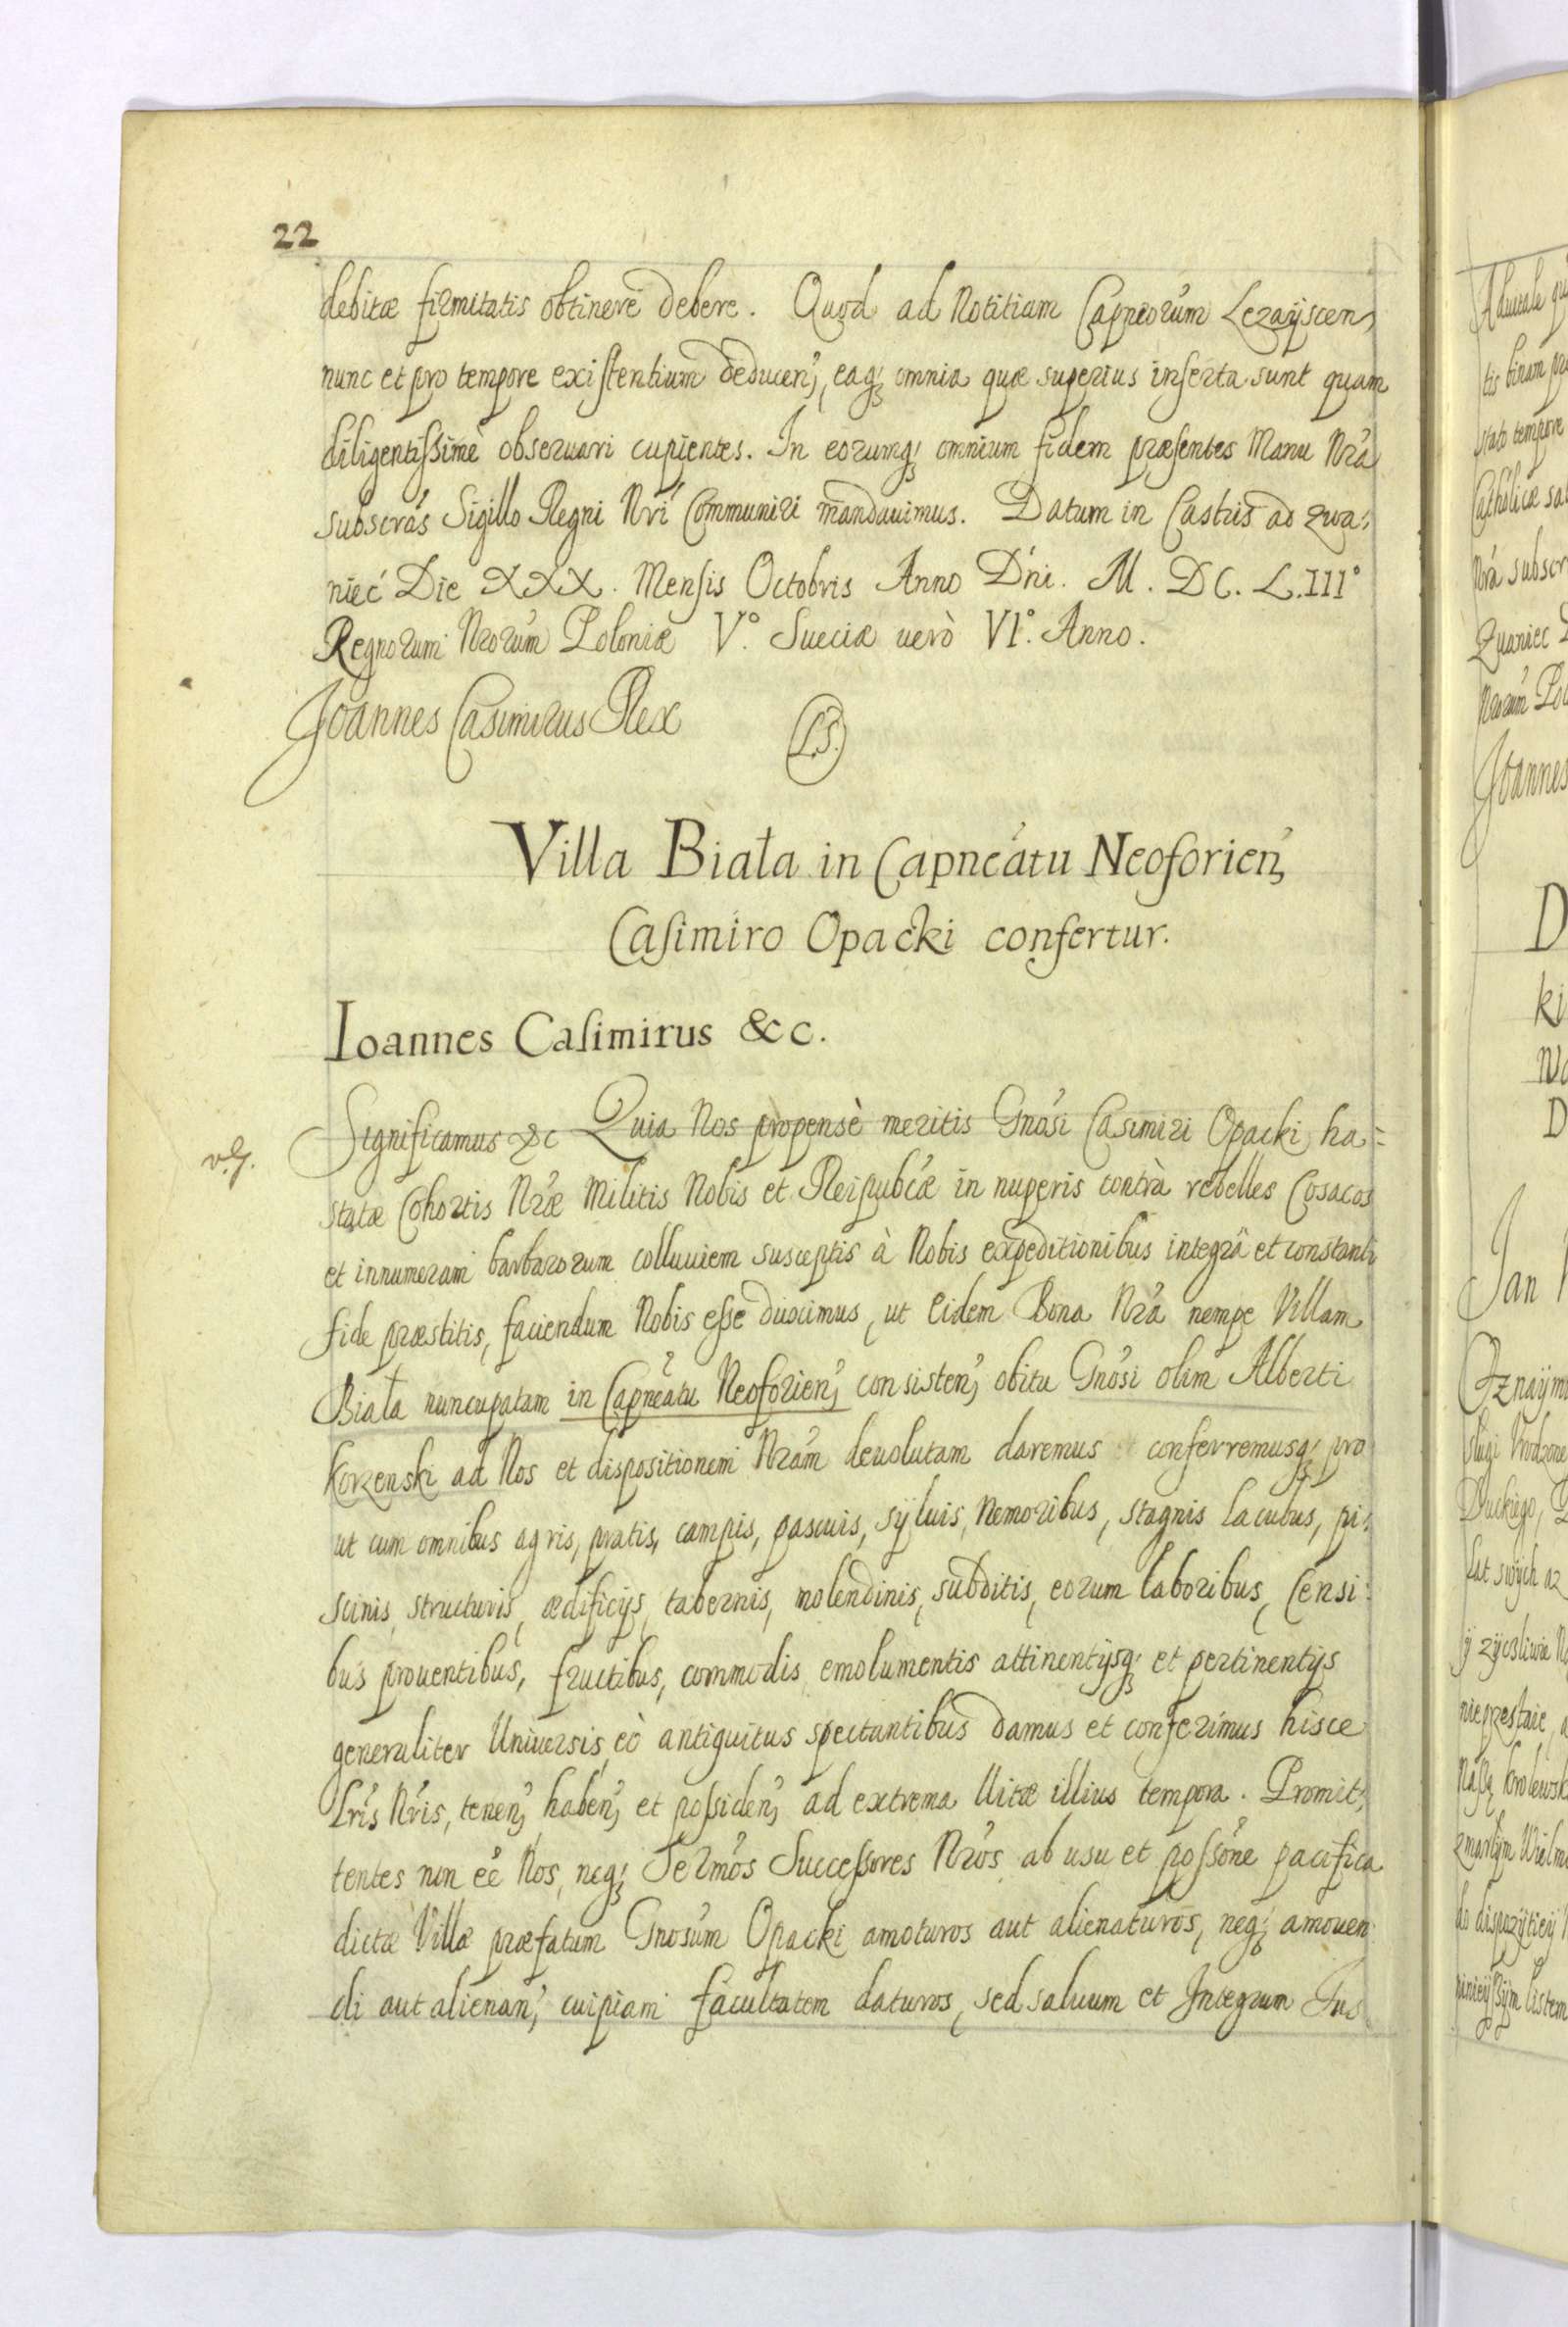 22
debitæ firmitatis obtinere debere. Quod ad Notitiam Capneorúm Lezaÿscen,
nunc et pro tempore existentium deducen, eaq; omnia quæ superius inserta sunt quam
diligentissimè obseruari cupientes. In eorumq; omnium fidem præsentes Manu Nrá
subscrás Sigillo Regni Nrí Communiri mandauimus. Datum in Castris ad Zwa:
niec Die XXX. Mensis Octobris Anno Dńi. M. DC. L.III°
Regnorum Nrorúm Poloniæ V°. Sueciæ uerò VI°. Anno.
Joannes Casimirus Rex L.S.
Villa Biała in Capneátu Neoforień,
Casimiro Opacki confertur.
Ioannes Casimirus &c.
v.g. Significamus &c Quia Nos propensè meritis Gnósi Casimiri Opacki ha=
statæ Cohortis Nræ Militis Nobis et Reipubcæ in nuperis contrà rebelles Cosacos
et innumeram barbarorum colluuiem susceptis à Nobis expeditionibus integrâ et constanti
fide præstitis, faciendum Nobis esse duximus, ut Eidem Bona Nrá nempe Villam
Biała nuncupatam in Capneátu Neoforień, consisteń, obitu Gnósi olim Alberti
Korzenski ad Nos et dispositionem Nrám deuolutam daremus conferremusq; pro
ut cum omnibus agris, pratis, campis, pascuis, sÿluis, Nemoribus, stagnis lacubus, pi:
scinis, structuris, ædificijs, tabernis, molendinis, subditis, eorum laboribus, Censi:
bus prouentibus, fructibus, commodis emolumentis attinentijsq; et pertinentijs
generaliter Uniuersis eò antiquitus spectantibus damus et conferimus hisce
Lrís Nrís, teneń, habeń, et possideń, ad extrema Uitæ illius tempora. Promit:
tentes non eé Nos, neq; Sermós Successores Nrós ab usu et possóne pacifica
dictæ Villæ præfatum Gnosúm Opacki amoturos aut alienaturos, neq; amouen
di aut alienań, cuipiam facultatem daturos, sed saluum et Integrum Ius